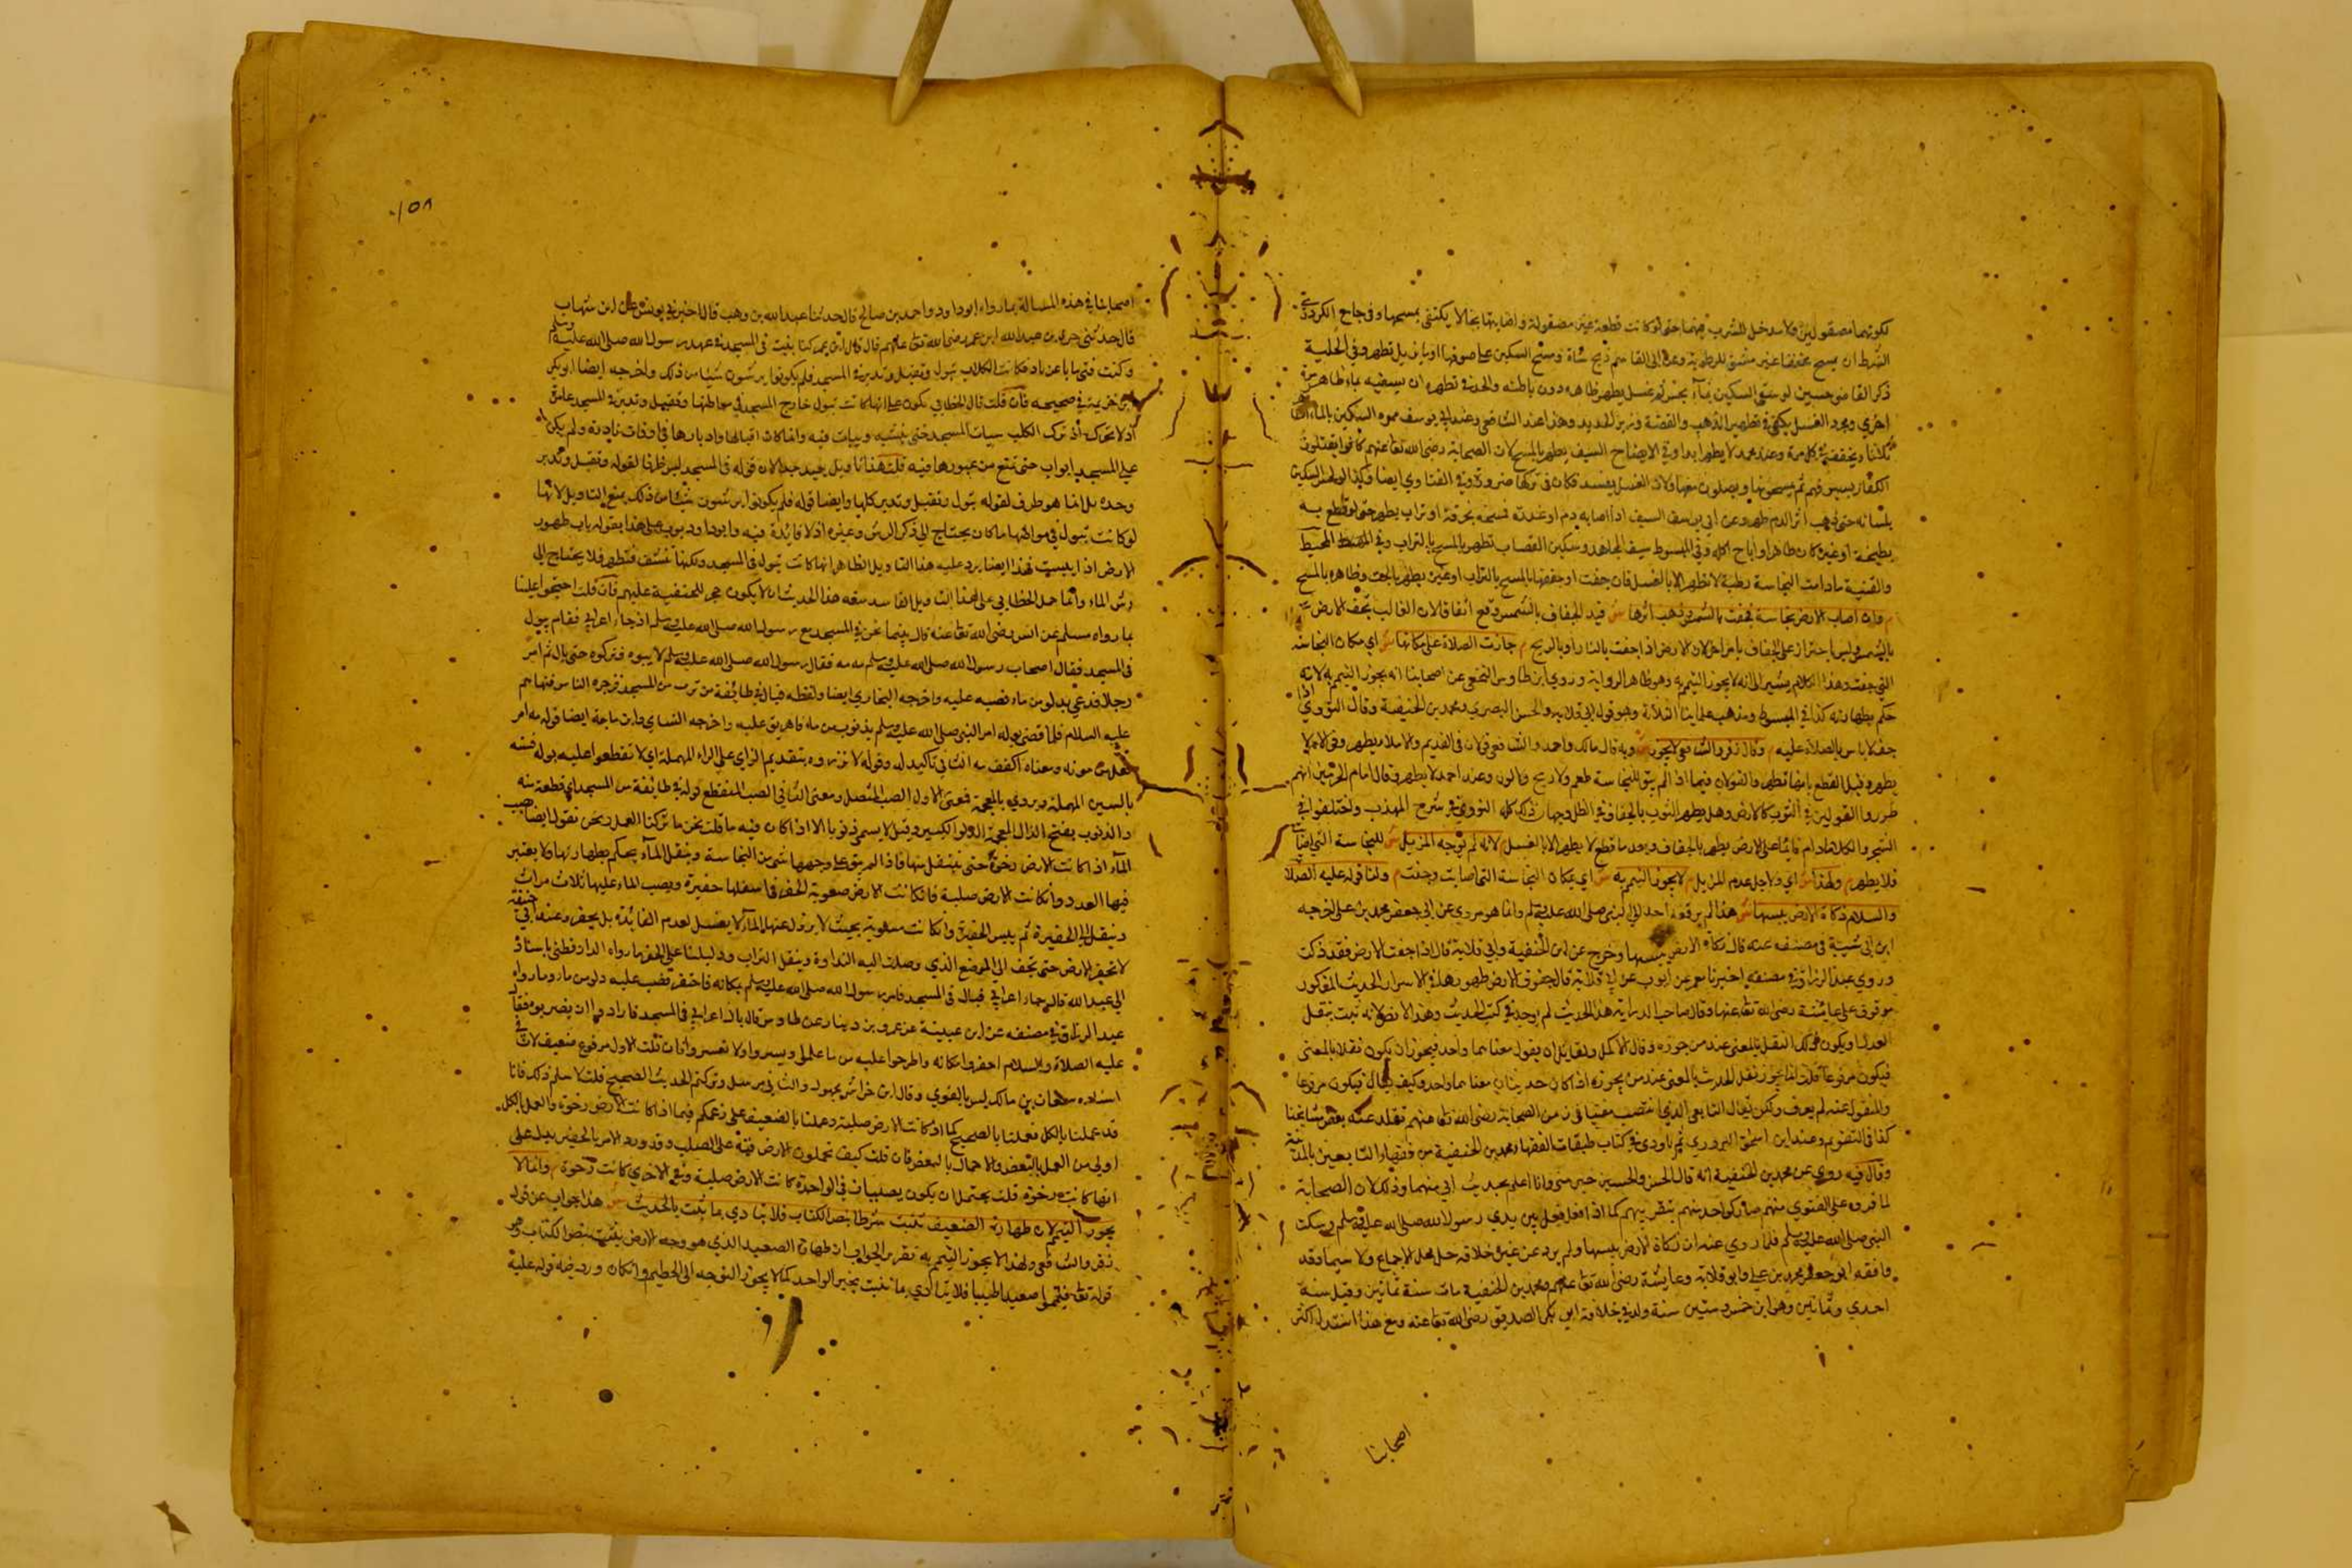 لكونهما مصقولين فلا مدخل للشرب فيهما حتى لو كانت قطعة غير مصقولة واصابتها نجاسة لا يكتفى بمسحها وفي جامع الكردري
الشرط ان يمسح مجففا غير مشق للرطوبة وعن ابي القاسم ذبح شاة ومسح السكين على صوفها او بما يزيل تطهر وفي الحلية
ذكر القاضي حسين لو سقى السكين بماء نجس ثم غسل يطهر ظاهره دون باطنه والحد في تطهيره ان يسقيه بماء طاهر مرة
اخرى ومجرد الغسل يكفي في تطهير الذهب والفضة وزبر الحديد وهذا عند الشافعي وعند ابي يوسف يموه السكين بالماء الطاهر
ثلاثا ويجففه في كل مرة وعند محمد لا يطهر ابدا وفي الايضاح السيف يطهر بالمسح لان الصحابة رضي الله تعا عنهم كانوا يقتلون
الكفار بسيوفهم ثم يمسحونها ويصلون معها ولان الغسل يفسد فكان في تركها ضرورة وفي الفتاوي ايضا وكذا لو لحس السكين
بلسانه حتى ذهب اثر الدم طهر وعن ابي يوسف السيف اذا اصابه دم او عذرة فمسحه بخرقة او تراب يطهر حتى لو قطع به
بطيخة او غيره كان طاهرا واباح اكله وفي المبسوط سيف المجاهد وسكين القصاب تطهر بالمسح بالتراب وفي المحيط
والقنية مادامت النجاسة رطبة لا تطهر الا بالغسل فان جفت او جففها بالمسح بالتراب او غيره يطهر بالحت وظاهره بالمسح
م وان اصاب الارض نجاسة فجفت بالشمس وذهب اثرها ش قيد الجفاف بالشمس وقع اتفاقا لان الغالب تجف الارض
بالشمس وليس باحتراز على الجفاف بامر اخر لان الارض اذا جفت بالنار او بالريح م جازت الصلاة على مكانها ش اي مكان النجاسة
التي جفت وهذا الكلام يشير الى انه لا يجوز التيمم به وهو ظاهر الرواية وروي ابن طاوس النخعي عن اصحابنا انه يجوز التيمم به لانه
حكم بطهارته كذا في المبسوط ومذهب علماينا الثلاثة وهو قول ابي قلابة والحسن البصري ومحمد بن الحنفية وقال النووي اذا
جف لا باس بالصلاة عليه م وقال زفر والشافعي لا يجوز ش وبه قال مالك واحمد والشافعي قولان في القديم والاملاء يطهر وفي الام لا
يطهر وقيل القطع بانها تطهر والقولان فيما اذا لم يبق للنجاسة طعم ولا ريح ولا لون وعند احمد لا يطهر وقال امام الحرمين انهم
طردوا القولين في الثوب كالارض وهل يطهر الثوب بالجفاف في الظل وجهان ذكر ذلك كله النووي في شرح المهذب واختلفوا في
الشجر والكلا مادام قائما على الارض يطهر بالجفاف وبعد ما قطع لا يطهر الا بالغسل م لانه لم يوجد المزيل ش للنجاسة التي اصابت
فلا يطهر م ولهذا ش اي ولاجل عدم المزيل م لا يجوز التيمم به ش اي بمكان النجاسة التي اصابت وجفت م ولنا قوله عليه الصلاة
والسلام ذكاة الارض يبسها ش هذا لم يرفعه احد الى النبي صلى الله عليه وسلم وانما هو مروي عن ابي جعفر محمد بن علي اخرجه
ابن ابي شيبة في مصنفه عنه قال ذكاة الارض يبسها وخرج عن ابن الحنفية وابي قلابة قال اذا جفت الارض فقد ذكت
وروي عبد الرزاق في مصنفه اخبرنا معمر عن ايوب عن ابي قلابة قال جفوف الارض طهورها وفي الاسرار الحديث المذكور
موقوف على عائشة رضي الله تعا عنها وقال صاحب الدراية هذا الحديث لم يوجد في كتب الحديث وهذا الا نقلا لانه ثبت بنقل
العدل ويكون ذلك النقل بالمعنى عند من جوزه وقال الاكمل ولقائل ان يقول معناهما واحد فيجوز ان يكون نقلا بالمعنى
فيكون مرفوعا قلت انما يجوز نقل الحديث بالمعنى عند من يجوزه اذا كان حديثان معناهما واحد وكيف يقال فيكون مرفوعا
والمنقول عنه لم يعرف ولكن يقال التابعي الذي انتصب مفتيا في زمن الصحابة رضي الله تعا عنهم تقلد عنه بعض مشايخنا
كذا في التقويم وعند ابن اسحق في كتاب طبقات الفقها ومحمد بن الحنفية من فقهاء التابعين بالمدينة
وقال فيه روي عن محمد بن الحنفية انه قال الحسن والحسين خير مني وانا اعلم بحديث ابي منهما وذلك لان الصحابة
لما قروه على الفتوي منهم صار كواحد منهم بتقريرهم كما اذا فعل فعل بين يدي رسول الله صلى الله عليه وسلم وسكت
النبي صلى الله عليه وسلم فلما روي عنه ان ذكاة الارض يبسها ولم يرد عن غيره خلافه حل محل الاجماع ولا سيما وقد
وافقه ابو جعفر محمد بن علي وابو قلابة وعايشة رضي الله تعا عنهم ومحمد بن الحنفية مات سنة ثمانين وقيل سنة
احدي وثمانين وهو ابن خمس وستين سنة ولد في خلافة ابي بكر الصديق رضي الله تعا عنه ومع هذا استدل اكثر
اصحابنا
١٥٨
اصحابنا في هذه المسالة بما رواه ابو داود واحمد بن صالح قال حدثنا عبد الله بن وهب قال اخبرني يونس عن ابن شهاب
قال حدثني حمزة بن عبد الله ابن عمر رضي الله تعا عنهم قال قال ابن عمر كنا نبيت في المسجد في عهد رسول الله صلى الله عليه وسلم
وكنت فتى شابا عزبا وكانت الكلاب تبول وتقبل وتدبر في المسجد فلم يكونوا يرشون شيئا من ذلك واخرجه ايضا ابو بكر
بن خزيمة في صحيحه فان قلت قال الخطابي يكون على انها كانت تبول خارج المسجد في مواطنها وتقبل وتدبر في المسجد عابرة
اذ لا يجوز ان تترك الكلاب تبيت المسجد حتى تمتهنه وتبات فيه وانما كان اقبالها وادبارها في اوقات نادرة ولم يكن
على المسجد ابواب حتى تمنع من عبورها فيه قلت هذا تاويل بعيد جدا لان قوله في المسجد ليس ظرفا لقوله وتقبل وتدبر
وحده بل انما هو ظرف لقوله تبول وتقبل وتدبر كلها وايضا قوله فلم يكونوا يرشون شيئا من ذلك يمنع التاويل لانها
لو كانت تبول في مواطنها ما كان يحتاج الى ذكر الرش وغيره اذ لا فائدة فيه وابو داود بوب على هذا بقوله باب طهور
الارض اذا يبست فهذا ايضا يرد عليه هذا التاويل الظاهر انها كانت تبول في المسجد ولكنها تنشف فتطهر فلا يحتاج الى
رش الماء وانما حمل الخطابي على هذا التاويل الفاسد منعه هذا الحديث ان لا يكون حجر للحنفية عليهم فان قلت احتجوا علينا
بما رواه مسلم عن انس رضي الله تعا عنه قال بينما نحن في المسجد مع رسول الله صلى الله عليه وسلم اذ جاء اعرابي فقام يبول
في المسجد فقال اصحاب رسول الله صلى الله عليه وسلم مه مه فقال رسول الله صلى الله عليه وسلم لا تزرموه فتركوه حتى بال ثم امر
رجلا فدعي بدلو من ماء فصبه عليه واخرجه البخاري ايضا ولفظه فبال في طائفة من المسجد فزجره الناس فنهاهم
عليه السلام فلما قضى بوله امر النبي صلى الله عليه وسلم بذنوب من ماء فاهريق عليه واخرجه النساي وابن ماجة ايضا قوله مه امر
ومعناه اكفف مه الثاني تاكيد له وقوله لا تزرموه بتقديم الزاي على الراء المهملة اي لا تقطعوا عليه بوله فشنه
بالسين المهملة ويروي بالمعجمة فمعنى الاول الصب المتصل ومعنى الثاني الصب المنقطع قوله في طائفة من المسجد اي قطعة منه
والذنوب بفتح الذال المعجمة الدلو الكبير وقيل لا يسمى ذنوبا الا اذا كان فيه ماء قلت نحن ما تركنا العمل ونحن نقول ايضا بصب
الماء اذا كانت الارض رخوة حتى تتسفل منها فاذا لم يبق على وجهها شئ من النجاسة وينقل الماء يحكم بطهارتها ولا يعتبر
فيها العدد وان كانت الارض صلبة فان كانت الارض صعوبة الحفر فاسفلها حفيرة ويصب الماء عليها ثلاث مرات
وينقل الى الحفيرة ثم يبس الحفيرة وان كانت مستوية بحيث لا يزول عنها الماء لا يغسل لعدم الفائدة بل يحفر وعند ابي حنيفة
لا تحفر الارض حتى تجف الى الموضع الذي وصلت اليه النداوة وينقل التراب ودليلنا على الحفر ما رواه الدارقطني باسناد
الى عبد الله قال جاء اعرابي فبال في المسجد فامر رسول الله صلى الله عليه وسلم بمكانه فاحتفر فصب عليه دلو من ماء وما رواه
عبد الرزاق في مصنفه عن ابن عيينة عن عمرو بن دينار عن طاوس قال بال اعرابي في المسجد فارادوا ان يضربوه فقال
عليه الصلاة والسلام احفروا مكانه واطرحوا عليه من ماء علموا ويسروا ولا تعسروا فان قلت الاول مرفوع ضعيف لان في
اسناده سمعان بن مالك ليس بالقوي وقال ابن خراش مجهول والثاني مرسل وتركتم الحديث الصحيح قلت لا نسلم ذلك فانا
قد عملنا بالكل فعملنا بالصحيح كما اذا كانت الارض صلبة وعملنا بالضعيف على زعمكم فيما اذا كانت الارض رخوة والعمل بالكل
اولى من العمل بالبعض والاهمال بالبعض فان قلت كيف تحملون الارض فيه على الصلب وقد ورد الامر بالحفر يدل على
انها كانت رخوة قلت يحتمل ان يكون يصليان في الواحدة كانت الارض صلبة وفي الاخري كانت رخوة م وانما لا
يجوز التيمم لان طهارة الصعيد ثبتت شرطا بنص الكتاب فلا يتادي بما ثبت بالحديث ش هذا جواب عن قول
زفر والشافعي ولهذا لا يجوز التيمم به تقرير الجواب ان طهارة الصعيد الذي هو وجه الارض ثبتت بنص الكتاب وهو
قوله تعا فتيمموا صعيدا طيبا فلا يتادي بما ثبت بخبر الواحد كما لا يجوز التوجه الى الحطيم وان كان ورد فيه قوله عليه